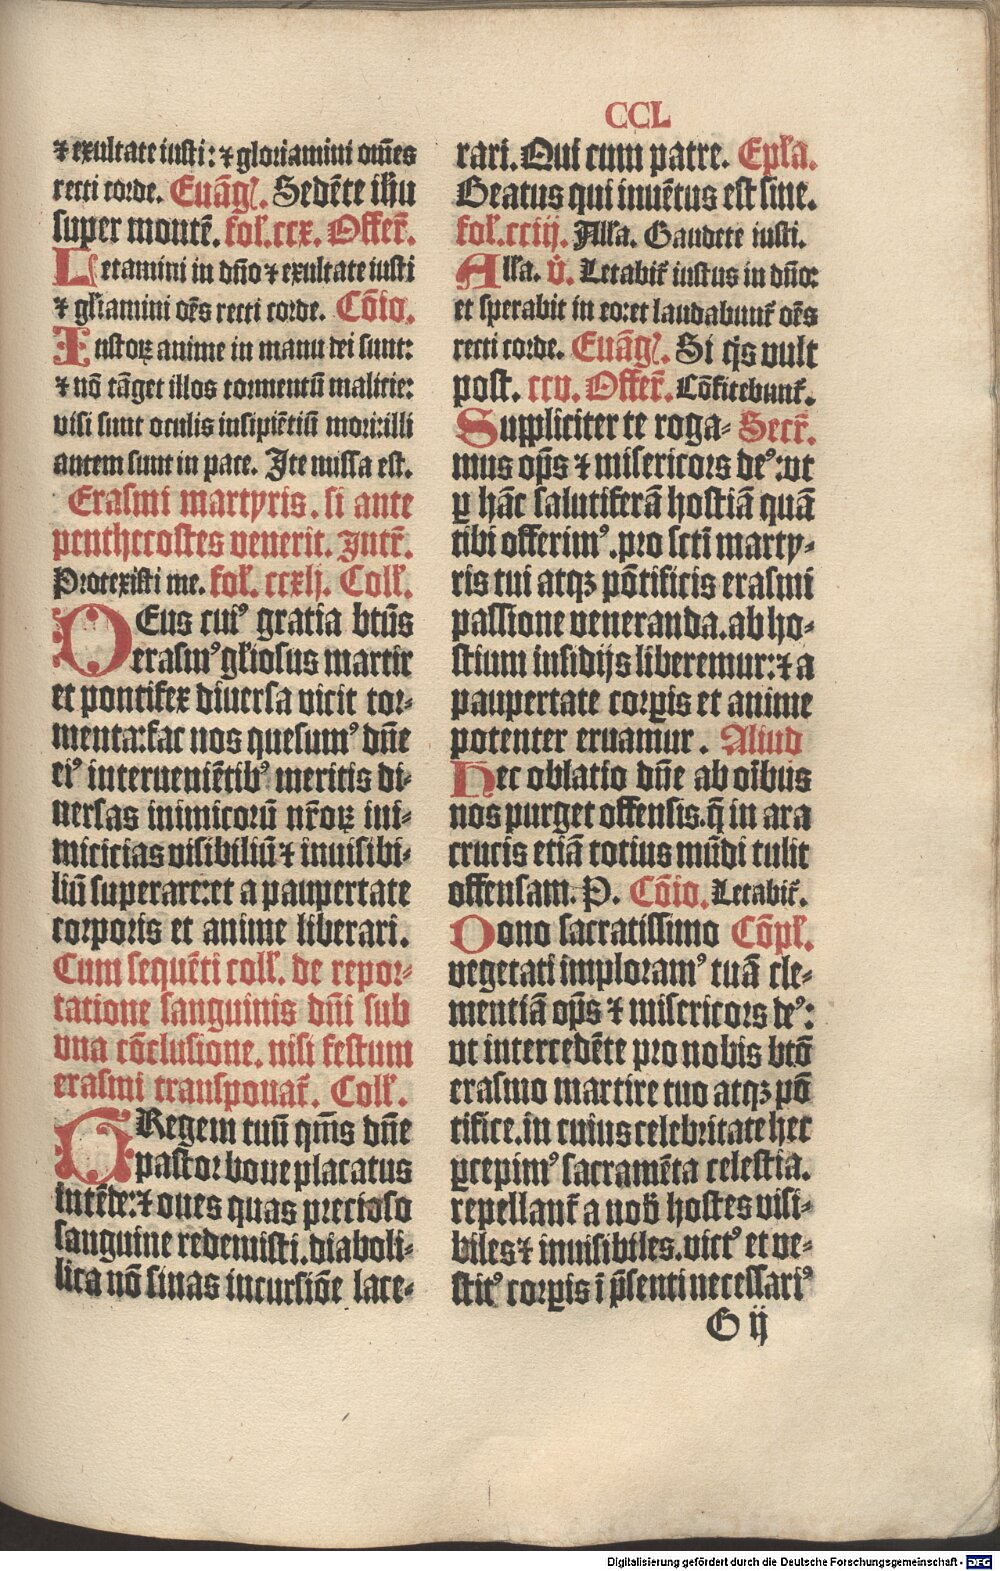 CCL
⁊ exultate iusti: ⁊ gloriamini om̄es
recti corde. Euāgl'. Sedēte ih̄u
super montē. fol'.ccx. Offer̄.
Letamini in dn̄o ⁊ exultate iusti
⁊ gl'iamini oēs recti corde. Cōio.
Iustoꝝ anime in manu dei sunt:
⁊ nō tāget illos tormentū malicie:
visi sunt oculis insipiētiū mori:illi
autem sunt in pace. Ite missa est.
Erasmi martyris. si ante
penthecostes venerit. Intr̄.
Protexisti me. fol'. ccxlj. Coll'.
DEus cuiꝰ gratia btūs
erasmꝰ gl'iosus martir
et pontifex diuersa vicit tor-
menta:fac nos quesumꝰ dn̄e
eiꝰ interueniētibꝰ meritis di-
uersas inimicorū nr̄oꝝ ini-
micicias visibiliū ⁊ inuisibi-
liū superare:et a paupertate
corporis et anime liberari.
Cum sequēti coll'. de repor-
tatione sanguinis dn̄i sub
vna cōclusione. nisi festum
erasmi transponat̄. Coll'.
GRegem tuū qm̄s dn̄e
pastor bone placatus
intēde:⁊ oues quas precioso
sanguine redemisti.diaboli-
lica nō sinas incursiōe lace-
rari. Qui cum patre. Epl'a.
Beatus qui inuētus est sine.
fol'.cciij. All'a. Gaudete iusti.
All'a. v̄. Letabit̄ iustus in dn̄o:
et sperabit in eo:et laudabunt̄ oēs
recti corde. Euāgl'. Si q̇s vult
post. ccv. Offer̄. Cōfitebunt̄.
Suppliciter te roga- Secr̄.
mus op̄s ⁊ misericors deꝰ:vt
ꝑ hāc salutiferā hostiā quā
tibi offerimꝰ.pro scti marty-
ris tui atqꝫ pōtificis erasmi
passione veneranda.ab ho-
stium insidijs liberemur:⁊ a
paupertate corꝑis et anime
potenter eruamur. Aliud
Hec oblatio dn̄e ab oībus
nos purget offensis.q̄ in ara
crucis etiā totius mūdi tulit
offensam. P. Cōio. Letabit̄.
Dono sacratissimo Cōpl'.
vegetati imploramꝰ tuā cle-
mentiā op̄s ⁊ misericors deꝰ:
vt intercedēte pro nobis btō
erasmo martire tuo atqꝫ pō
tifice.in cuius celebritate hec
ꝑcepimꝰ sacramēta celestia.
repellant̄ a nob̄ hostes visi-
biles ⁊ inuisibiles.victꝰ et ve-
stitꝰ corꝑis ī p̄senti necessariꝰ
G ij
Digitalisierung gefördert durch die Deutsche Forschungsgemeinschaft - DFG